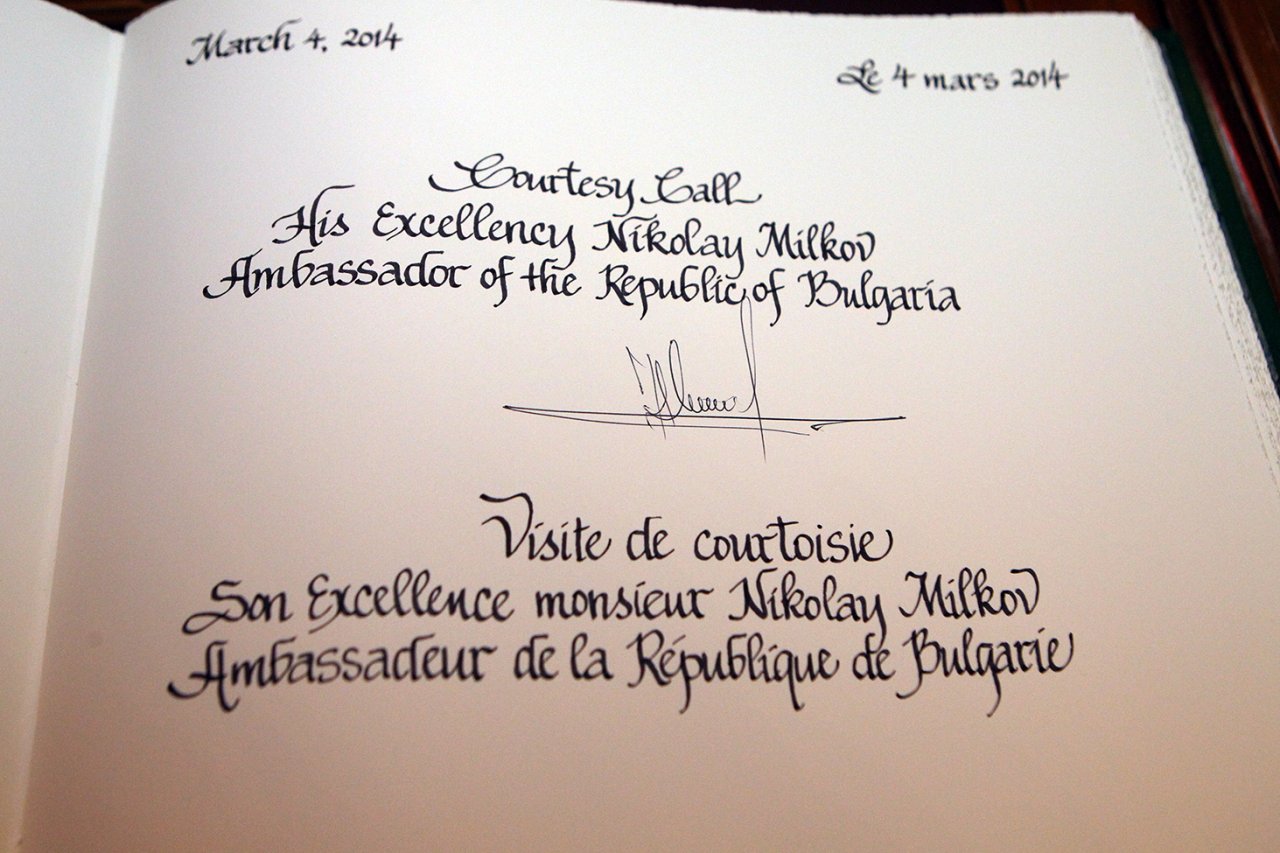 March 4, 2014
Le 4 mars 2014
Courtesy Call
His Excellency Nikolay Milkov
Ambassador of the Republic of Bulgaria
Visite de courtoisie
Son Excellence monsieur Nikolay Milkov
Ambassadeur de la République de Bulgarie